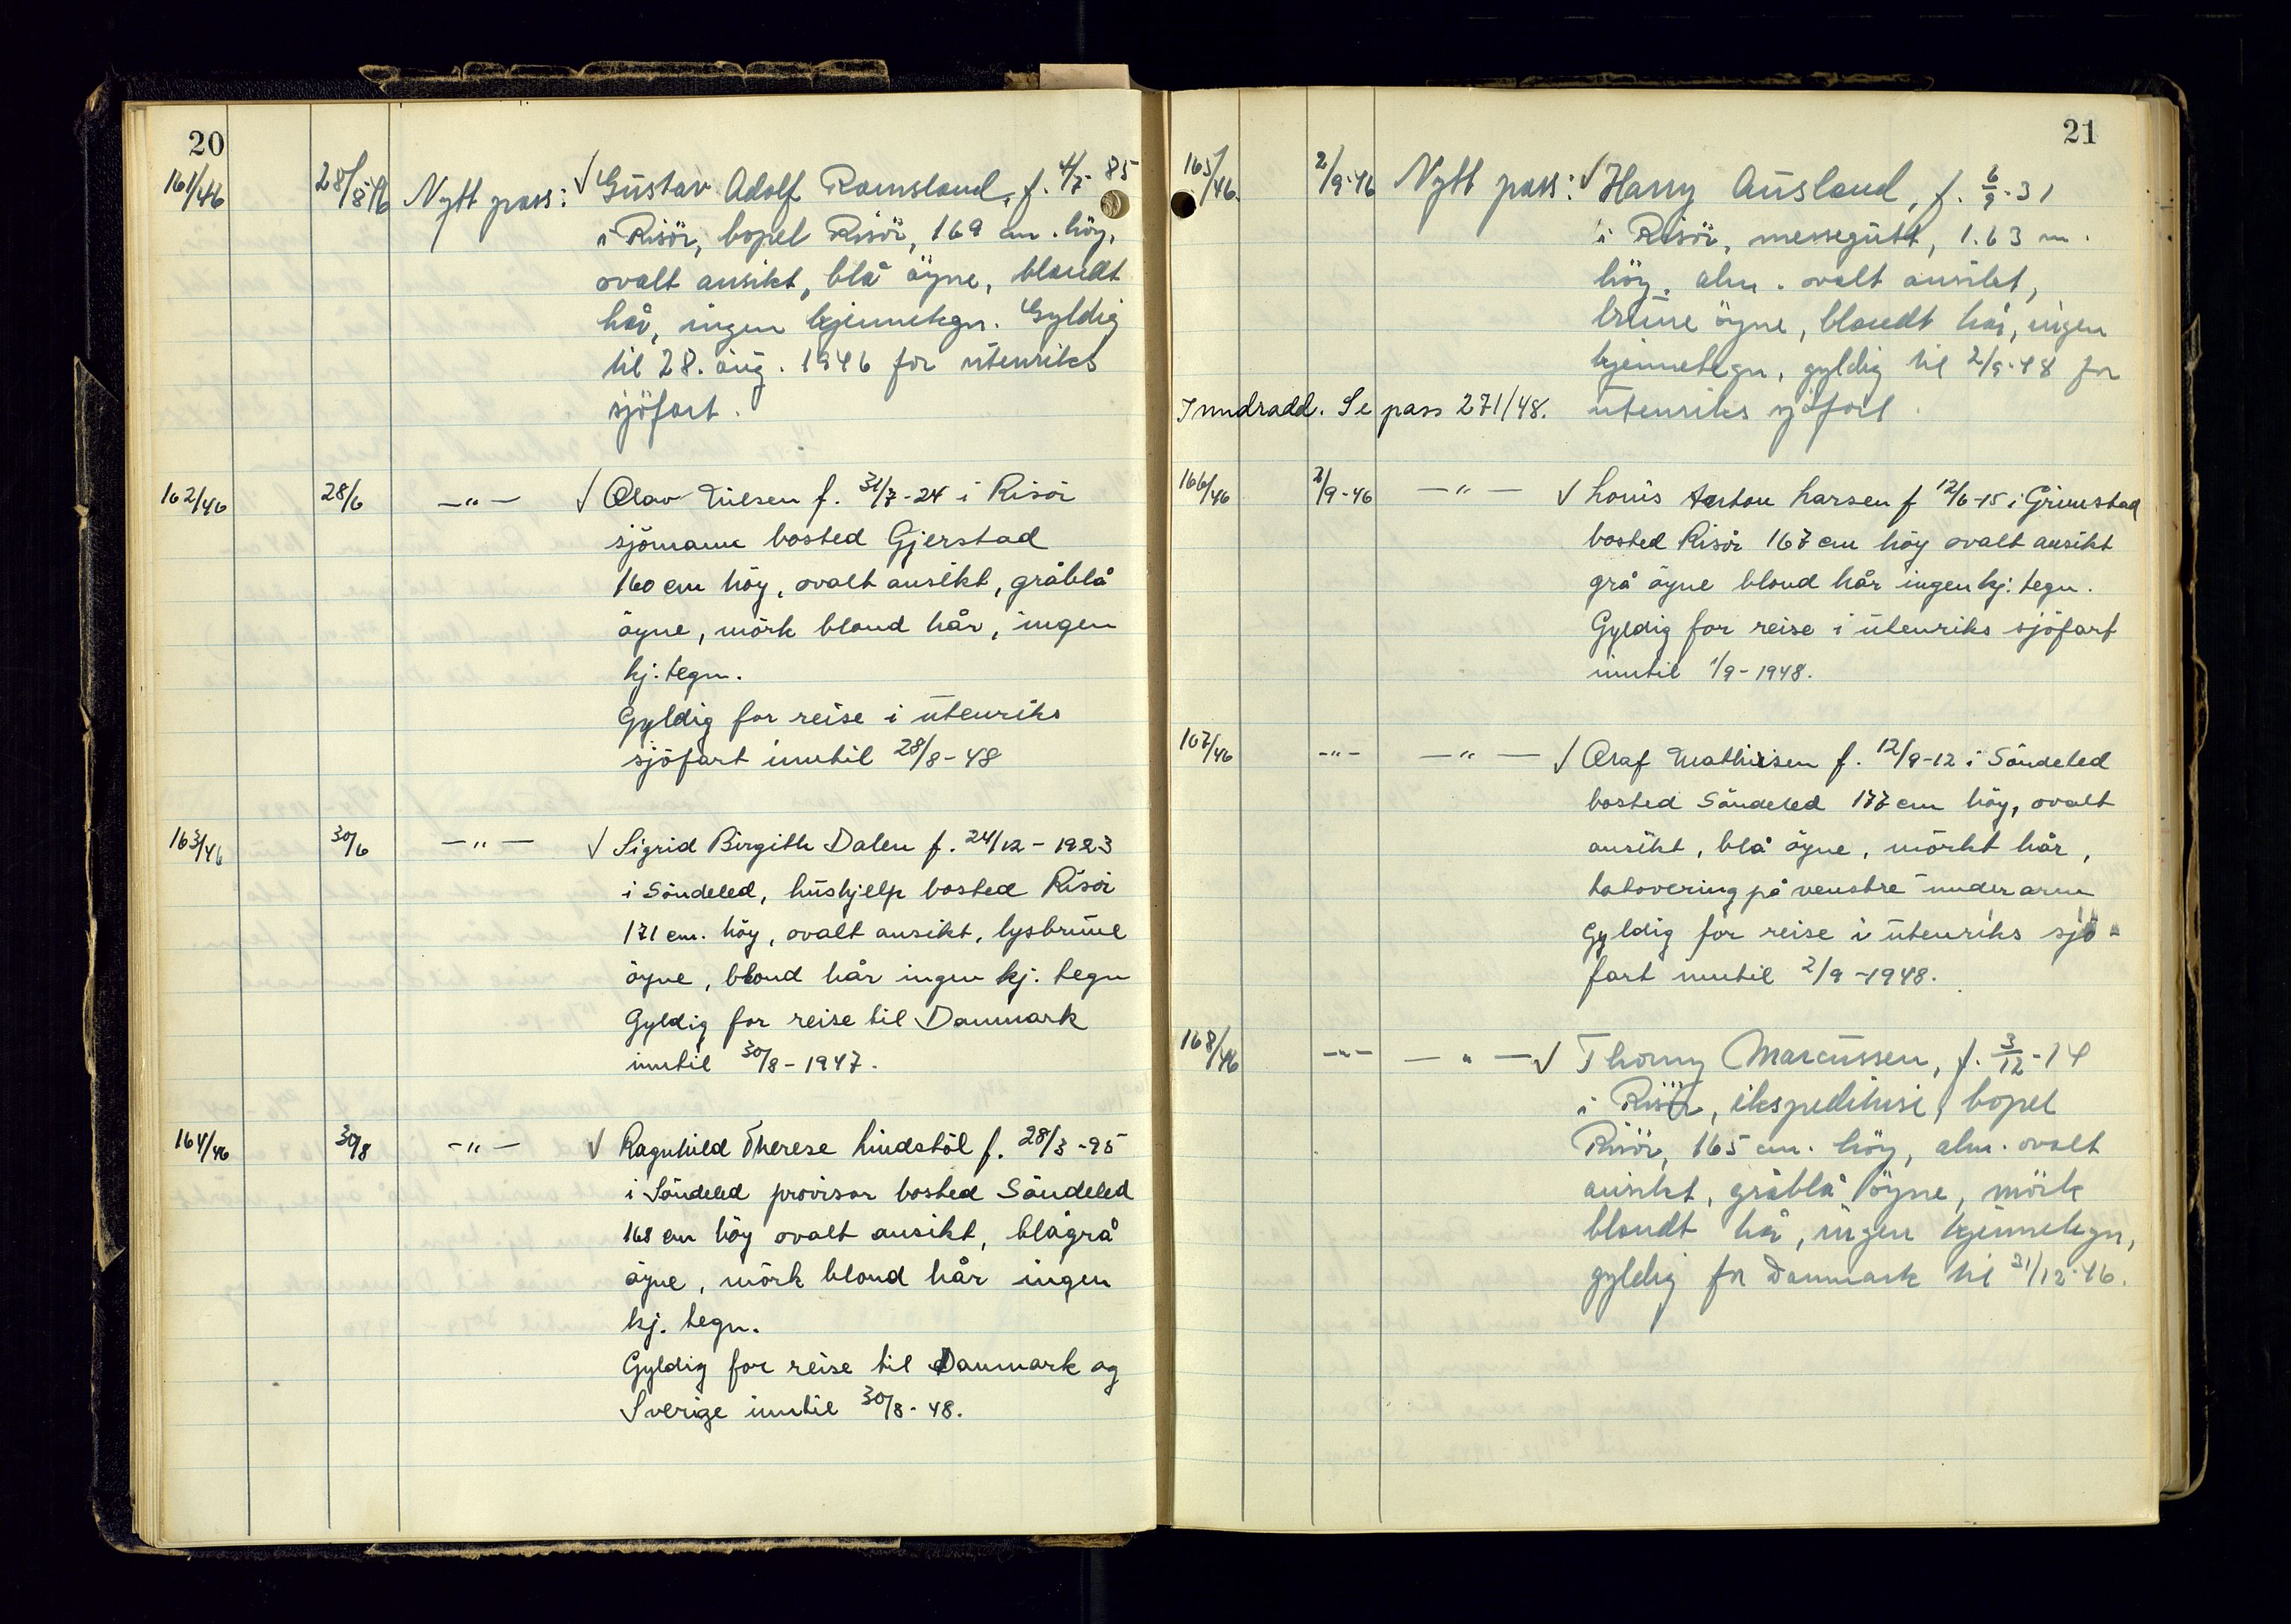 20
161/46 28/8.46 Nytt pass: √ Gustav Adolf Ramsland, f. 4/7-85
i Risör, bopel Risör, 169 cm. höy,
ovalt ansikt, blå öyne, blondt
hår, ingen kjennetegn. Gyldig
til 28. aug. 1946 for utenriks
sjöfart.
162/46 28/6 —"— √ Olav Nilsen f. 31/7-24 i Risör
sjömann bosted Gjerstad
160 cm höy, ovalt ansikt, gråblå
öyne, mörk blond hår, ingen
kj: tegn.
Gyldig for reise i utenriks
sjöfart inntil 28/8-48
163/46 30/6 —"— √ Sigrid Birgith Dalen f. 24/12-1923
i Söndeled, hushjelp bosted Risör
171 cm. höy, ovalt ansikt, lysbrune
öyne, blond hår ingen kj. tegn
Gyldig for reise til Danmark
inntil 30/8-1947.
164/46 30/8 —"— √ Ragnhild Therese Lindstöl f. 28/3-95
i Söndeled provisor bosted Söndeled
168 cm höy ovalt ansikt, blågrå
öyne, mörk blond hår ingen
kj. tegn.
Gyldig for reise til Danmark og
Sverige inntil 30/8-48.
21
165/46. 2/9-46 Nytt pass: √ Harry Ausland, f. 6/9-31
i Risör, messegutt, 1.63 m.
höy, alm. ovalt ansikt,
brune öyne, blondt hår, ingen
kjennetegn, gyldig til 2/9-48 for
Inndradd. Se pass 271/48. utenriks sjöfart
166/46 2/9-46 —"— √ Louis Anton Larsen f 12/6-15 i Grimstad
bosted Risör 167 cm höy ovalt ansikt
grå öyne blond hår ingen kj: tegn.
Gyldig for reise i utenriks sjöfart
inntil 1/9-1948.
167/46 -"- —"— √ Olaf Mathisen f. 12/9-12 i Söndeled
bosted Söndeled 177 cm höy, ovalt
ansikt, blå öyne, mörkt hår,
tatovering på venstre underarm
Gyldig for reise i utenriks sjö-
fart inntil 2/9-1948.
168/46 -"- —"— √ Thorny Marcussen, f. 3/12-14
i Risör, ekspeditrise, bopel
Risör, 165 cm. höy, alm. ovalt
ansikt, gråblå öyne, mörk
blondt hår, ingen kjennetegn,
gyldig for Danmark til 31/12-46.